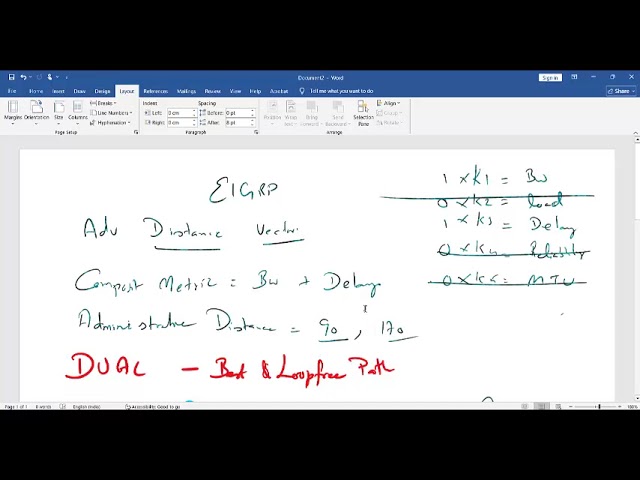 Document2 - Word
Sign in
File Home Insert Draw Design Layout References Mailings Review View Help Acrobat Tell me what you want to do
Share
Margins Orientation Size Columns
Breaks
Line Numbers
Hyphenation
Page Setup
Indent
Left: 0 cm
Right: 0 cm
Spacing
Before: 0 pt
After: 8 pt
Paragraph
Position Wrap Text Bring Forward Send Backward Selection Pane
Align
Group
Rotate
Arrange
EIGRP
Adv Distance Vector
Composit Metric = Bw + Delay
Administrative Distance = 90, 170
DUAL - Best & Loopfree Path
1 x K1 = Bw
0 x K2 = load
1 x K3 = Delay
0 x K4 = Reliability
0 x K5 = MTU
Page 1 of 1 0 words English (India) Accessibility: Good to go